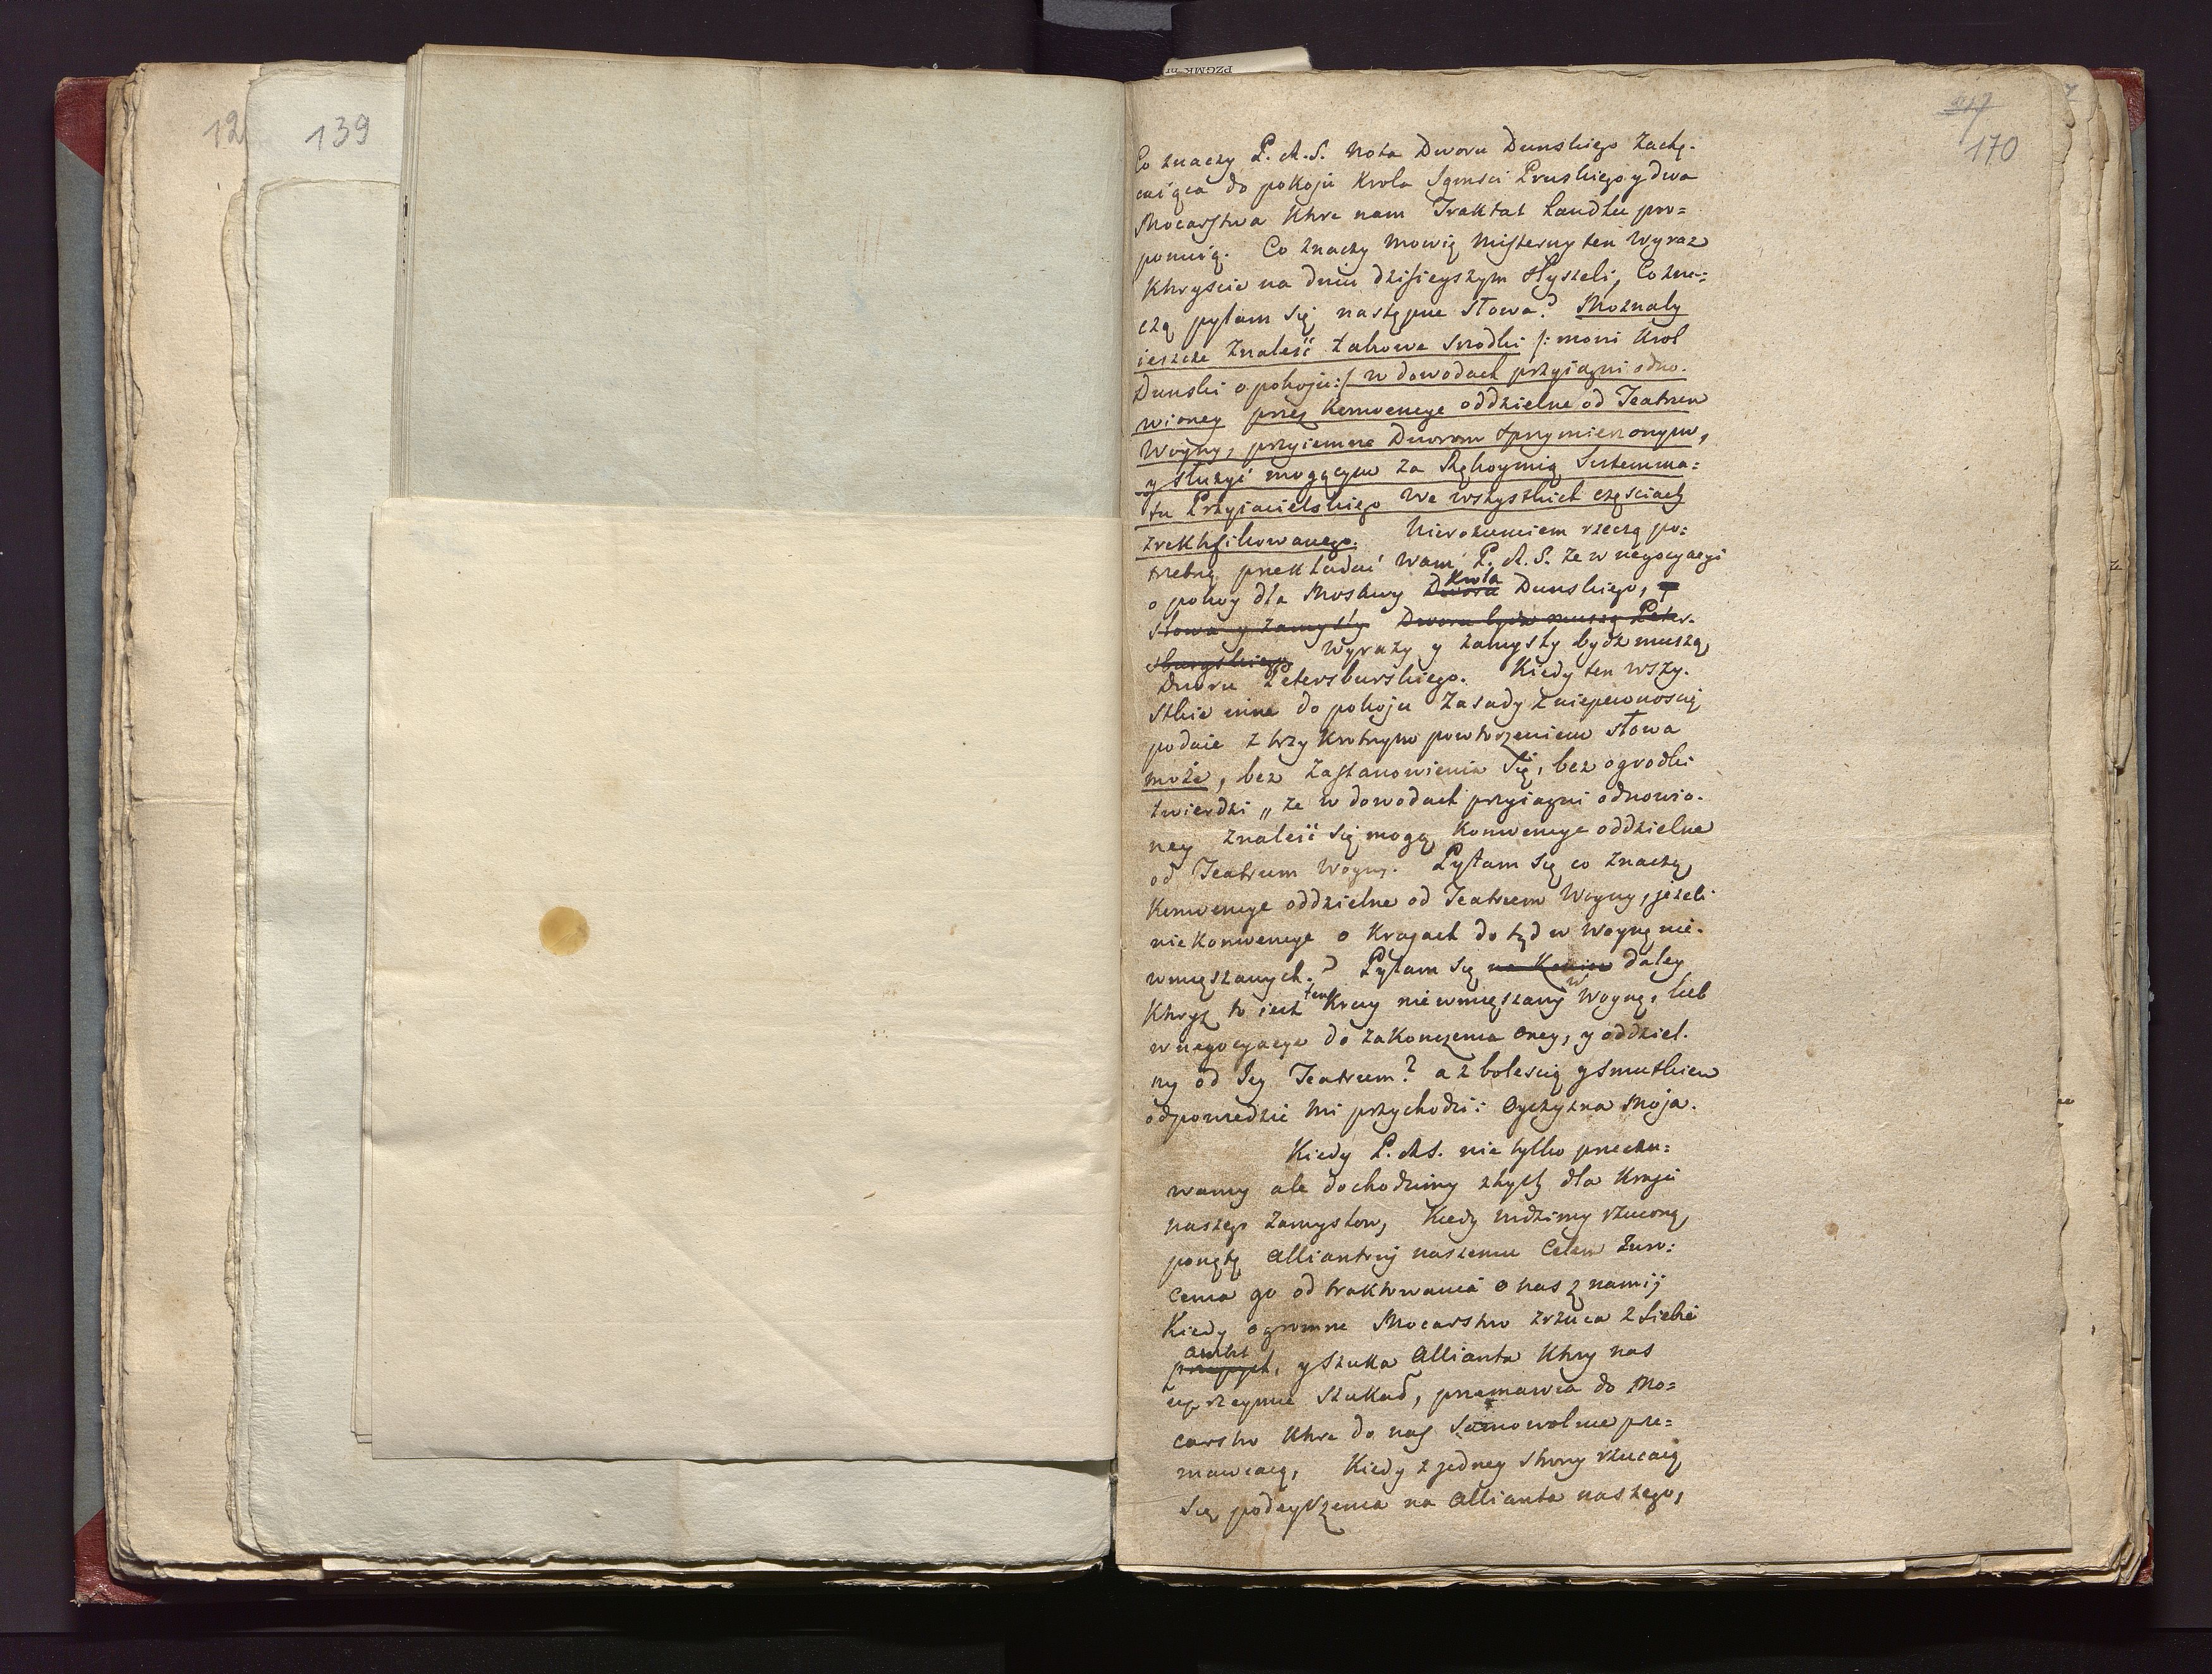 12
139
217
170
Co znaczy P. A. S. Nota Dworu Dunskiego Zachę-
caiąca do pokoju Krola Jgmsci Pruskiego y dwa
Mocarstwa Ktore nam Traktat handlu pro=
ponuią. Co znaczy mowię misterny ten Wyraz
Ktoryscie na dniu dzisieyszym słyszeli, Co zna=
czą pytam się następne słowa? Moznaby
ieszcze znaleść takowe srodki /: mowi Krol
Dunski o pokoju :/ w dowodach przyiazni odno-
wioney przez Konwencye oddzielne od Teatrum
Woyny, przyiemne Dworom sprzymierzonym,
y służyć mogącym za Rękoymią Sistemma=
tu Przyiacielskiego we wszystkich częsciach
zrektyfikowanego. Nierozumiem rzeczą po=
trzebną przekładać wam P. A. S. ze w negocyacyi
o pokoy dla Moskwy Dworu Krola Dunskiego, y
słowa y zamysły Dworu bydz muszą Peter-
sburgskiego Wyrazy y zamysły bydz muszą
Dworu Petersburskiego. Kiedy ten wszy-
stkie inne do pokoju Zasady z niepewnoscią
podaie z trzykrotnym powtorzeniem słowa
może, bez zastanowienia się, bez ogrodki
twierdzi „ ze w dowodach przyiazni odnowio-
ney znaleść się mogą Konwencye oddzielne
od Teatrum Woyny. Pytam się co znaczą
Konwencye oddzielne od Teatrum Woyny, jeżeli
nie Konwencye o Krajach do tąd w Woynę nie-
wmięszanych? Pytam się daley
Ktoryż to iest ten Kray niewmięszany w Woynę, lub
w negocyacye do zakonczenia oney, y oddziel-
ny od Jey Teatrum? a z bolescią y smutkiem
odpowiedzić mi przychodzi: Oyczyzna Moja.
Kiedy P. A. S. nie tylko przeczu=
wamy ale dochodzimy złych dla Kraju
naszego zamysłow, Kiedy widzimy rzuconą
ponętę Alliantowi naszemu Celem Zwro=
cenia go od traktowania o nas z namij
Kiedy ogromne Mocarstwo zrzuca z siebie
przepych, y szuka Allianta Ktory nas
uprzeymie szukał, przemawia do Mo=
carstw Ktore do nas samowolnie prze=
mawiaią, Kiedy z jedney strony rzucaią
się podeyrzenia na Allianta naszego,